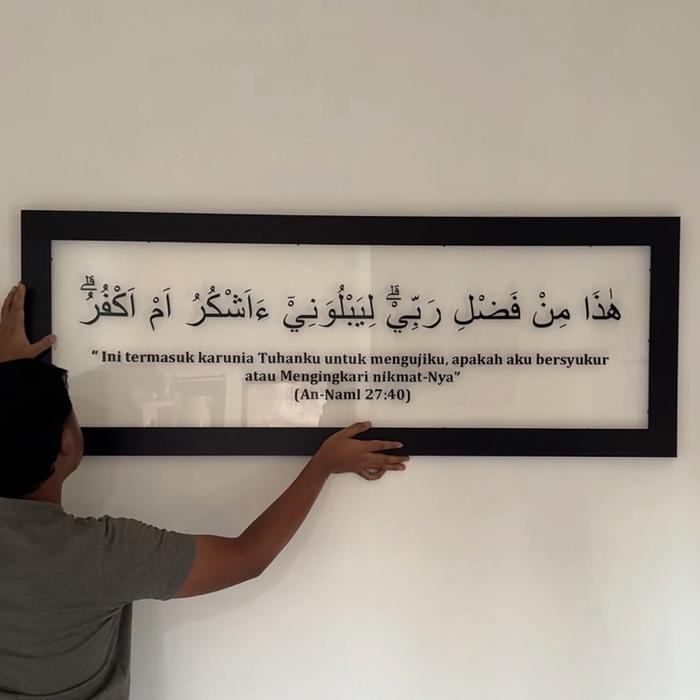 هٰذَا مِنْ فَضْلِ رَبِّيْۗ لِيَبْلُوَنِيْٓ ءَاَشْكُرُ اَمْ اَكْفُرُۗ
“ Ini termasuk karunia Tuhanku untuk mengujiku, apakah aku bersyukur
atau Mengingkari nikmat-Nya”
(An-Naml 27:40)